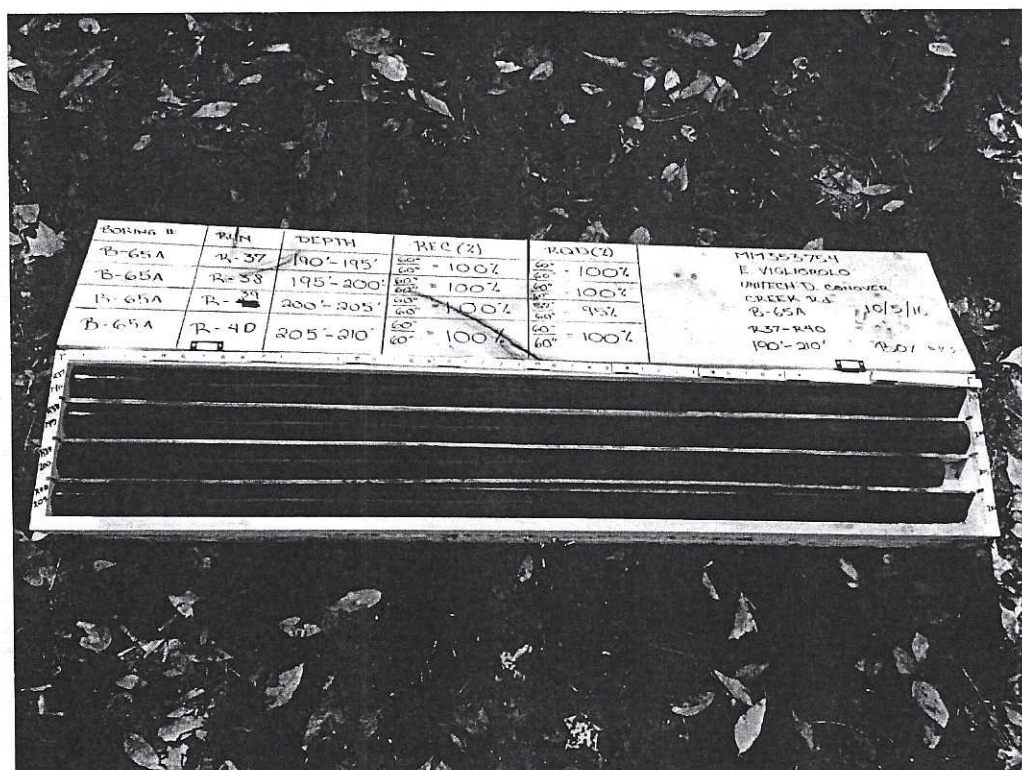 BORING # RUN DEPTH REC (%) RQD (%)
B-65A R-37 190'-195' 60"/60" = 100% 60"/60" = 100%
B-65A R-38 195'-200' 60"/60" = 100% 60"/60" = 100%
B-65A R-39 200'-205' 60"/60" = 100% = 95%
B-65A R-40 205'-210' 60"/60" = 100% 60"/60" = 100%
E. VIGLIGROLO
UNITECH D. CONOVER
CREEK Rd
B-65A 10/5/16
R37-R40
190'-210'